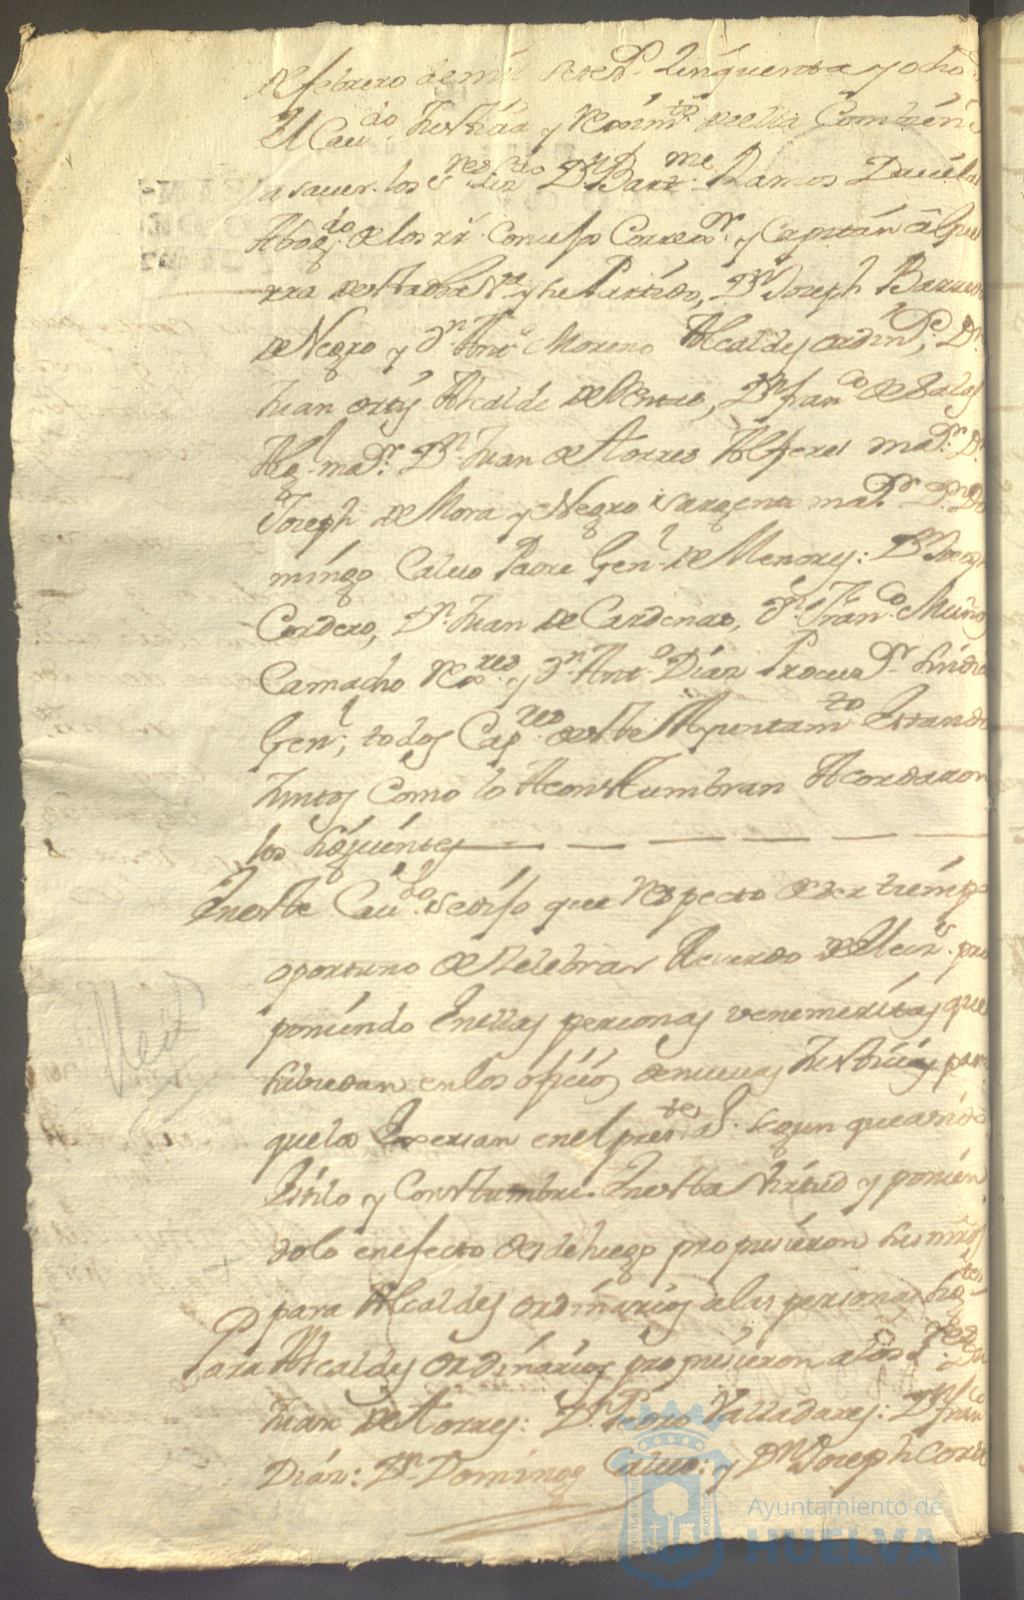 de febrero de mil setesᵗ. zinquenta y ocho
El Cauᵈᵒ Justizia y Rexim.ᵗᵒ de ella Combiene
a sauer. los sʳᵉˢ Lizᵈᵒ Dⁿ Barᵐᵉ Ramos Dauila
Abogᵈᵒ. de los rr. Consejos Corregᵒʳ. y Capitán a Guer
rra de esta dha Vª y su Partido, Dⁿ Joseph Barreda
de Negro y Dⁿ Antº Moreno Alcaldes ordin.ˢ, Dⁿ
Juan ortiz Alcalde de la, Dⁿ franᶜᵒ de Salas
Alg. maᵒʳ. Dⁿ Juan de Torres Alferes maᵒʳ. Dⁿ
Joseph de Mora y Negro sargento maᵒʳ Dⁿ Do
mingo Caluo Padre Genˡ de Menores: Dⁿ Joseph
Cordero, Dⁿ. Juan de Cardenas, Dⁿ Franᶜᵒ. Muños
Camacho Rexᵒʳᵉˢ. y Dⁿ Antº Diaz Procuᵒʳ. sindico
Genˡ, todos Capᵘʳᵉˢ. de este Ayuntamᵗᵒ Estando
Juntos como lo Acostumbran Acordaron
los siguientes
En este Cauᵈᵒ. se dijo que respecto de ser tiempo
oportuno de Zelebrar Acuerdo de Elecⁿˢ. pro
poniendo En ellas personas venemeritas que
subzedan en los ofiçios de nuevas Justiçias para
que los Exersan en el presᵗᵉ aº. segun que a sido
Estilo y Constumbre. En esta Virtud y ponien
dolo en efecto desde luego propusieron sus mrds
para Alcaldes ordinarios a las personas sigᵗᵉˢ
Para Alcaldes ordinarios propusieron a los sʳᵉˢ Dⁿ
Juan de Torres: Dⁿ Pedro Valladares: Dⁿ franᶜᵒ
Diaz: Dⁿ Domingo Caluo: y Dⁿ Joseph Corde
Ayuntamiento de
HUELVA